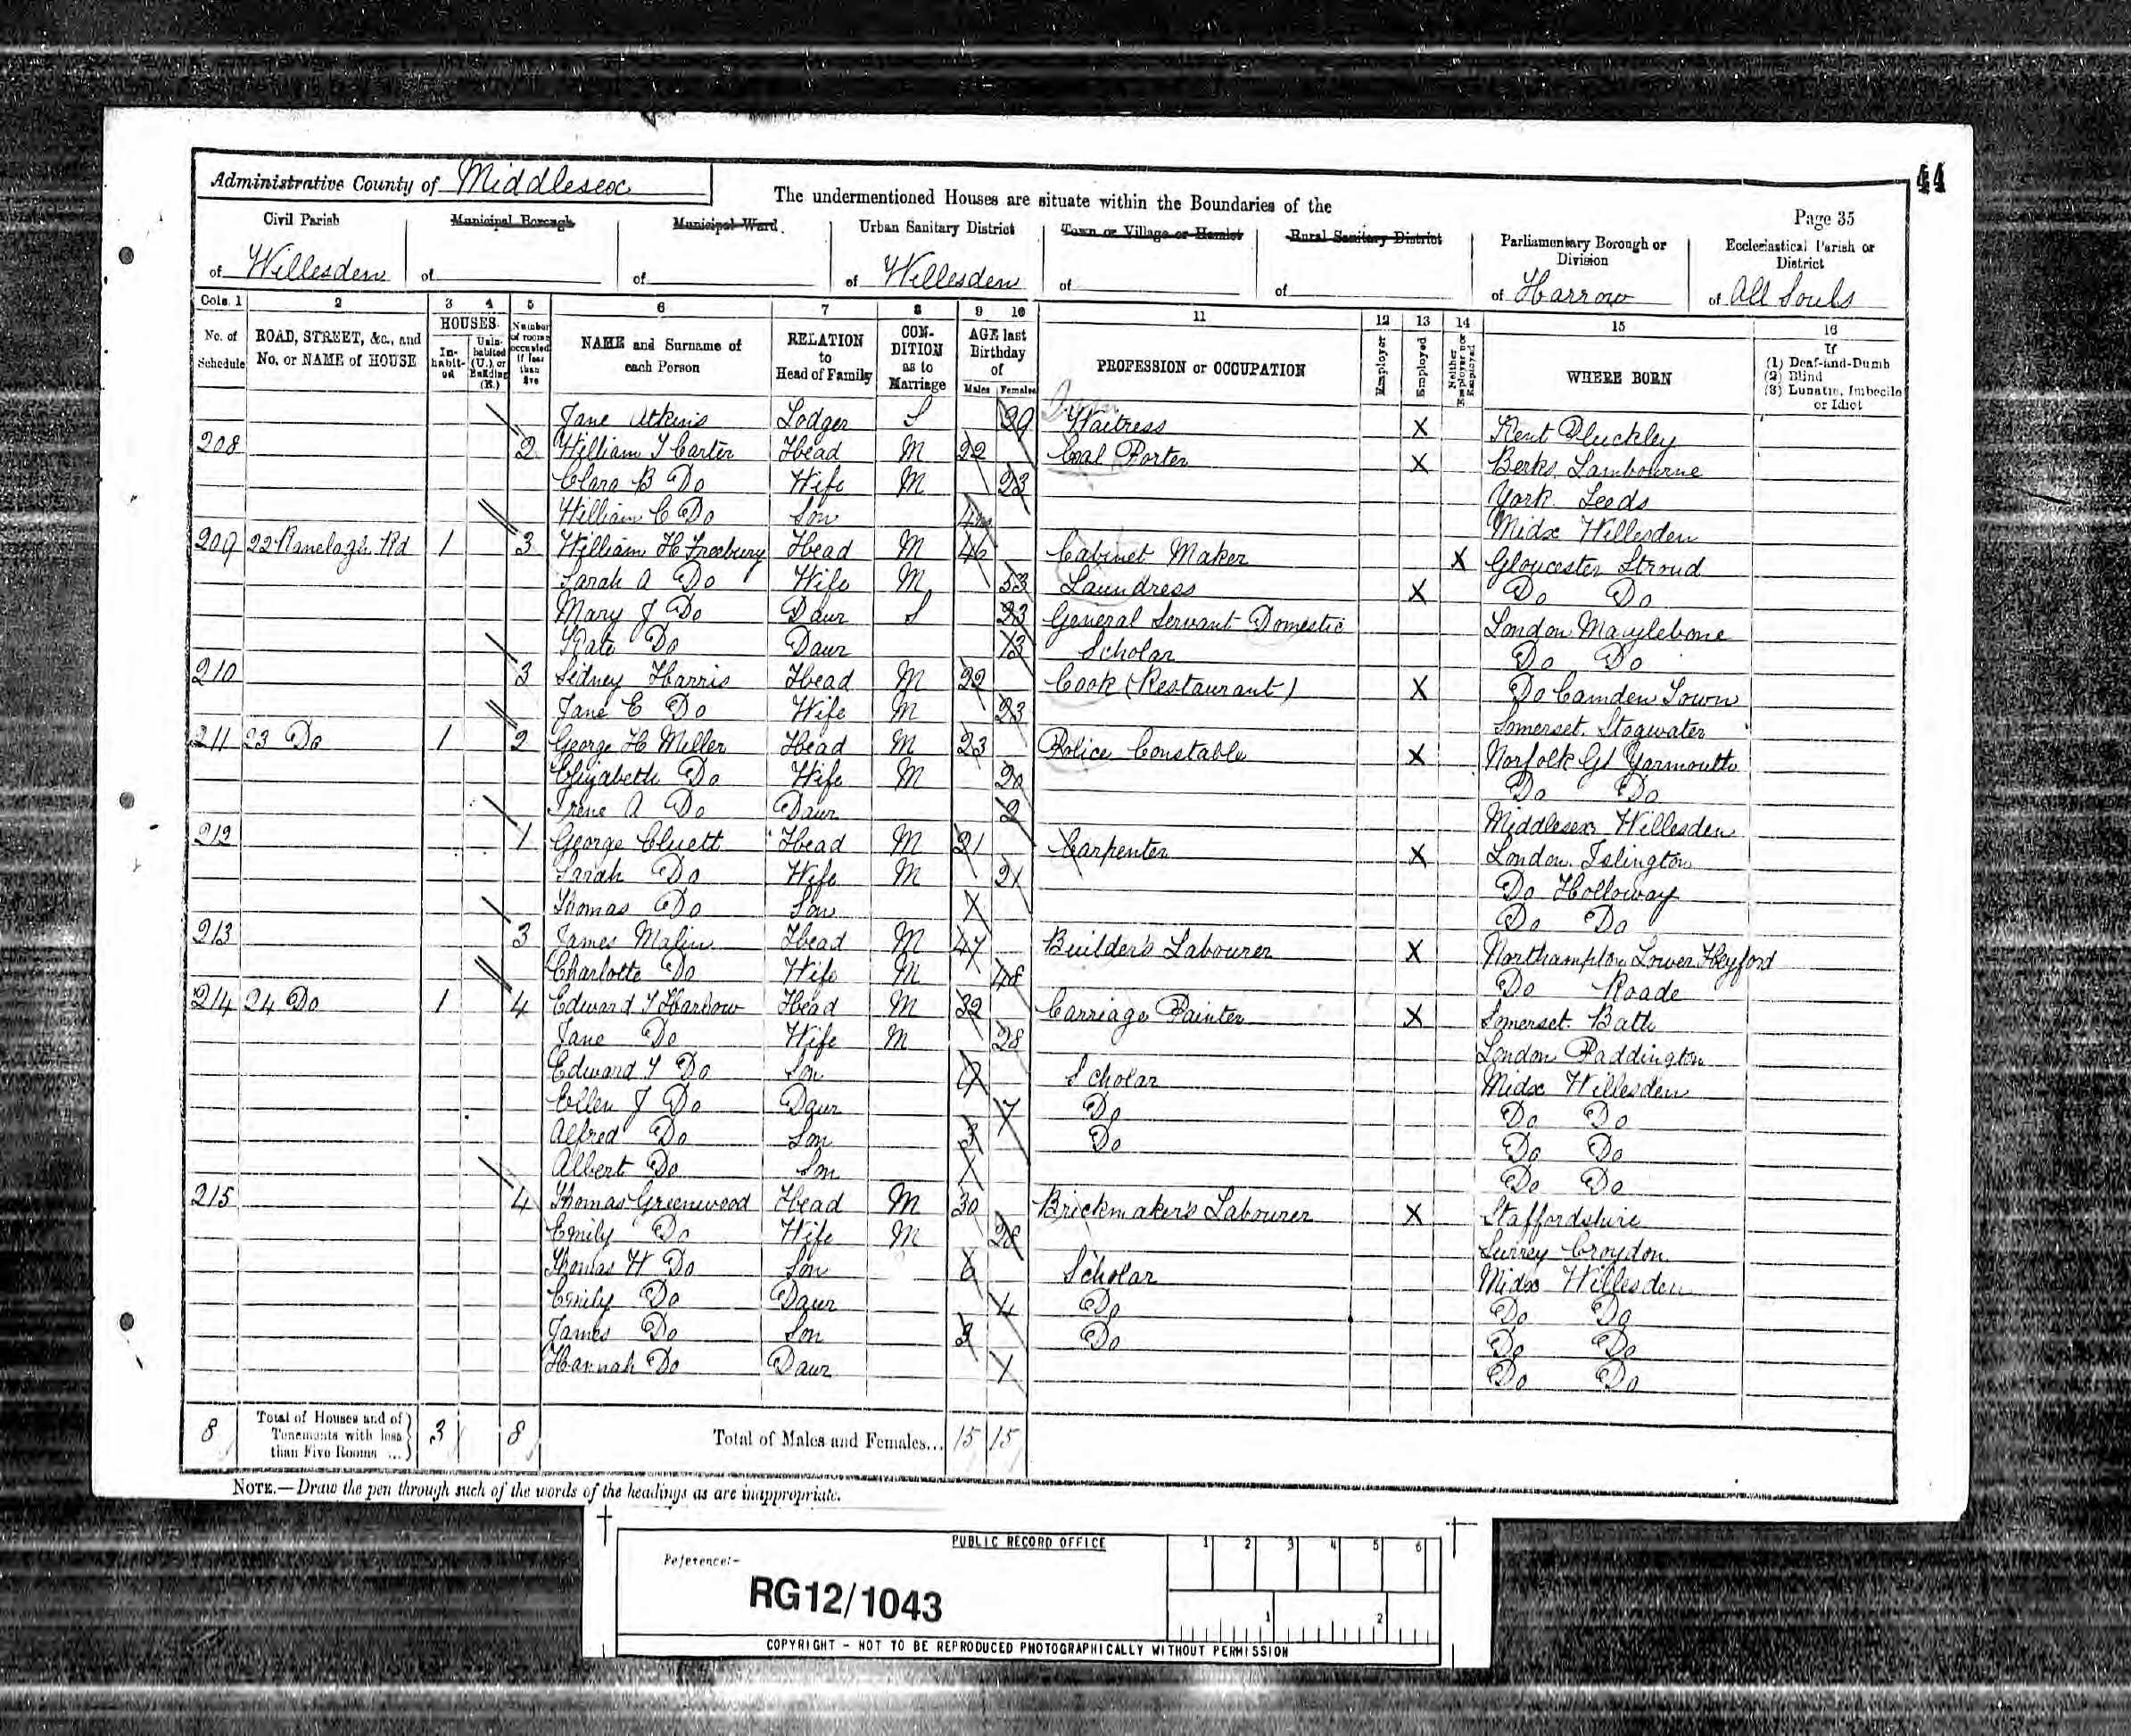 44
Administrative County of Middlesex
The undermentioned Houses are situate within the Boundaries of the
Page 35
Civil Parish of Willesden
Municipal Borough of
Municipal Ward of
Urban Sanitary District of Willesden
Town or Village or Hamlet of
Rural Sanitary District of
Parliamentary Borough or Division of Harrow
Ecclesiastical Parish or District of All Souls
Cols. 1 2 3 4 5 6 7 8 9 10 11 12 13 14 15 16
No. of Schedule
ROAD, STREET, &c., and No. or NAME of HOUSE
HOUSES
In-habit-ed
Unin-habited (U.), or Building (B.)
Number of rooms occupied if less than five
NAME and Surname of each Person
RELATION to Head of Family
CON-DITION as to Marriage
AGE last Birthday of
Males Females
PROFESSION or OCCUPATION
Employer
Employed
Neither Employer nor Employed
WHERE BORN
If (1) Deaf-and-Dumb (2) Blind (3) Lunatic, Imbecile or Idiot
Jane Atkins Lodger S 29 Waitress X Kent Pluckley
208 2 William T Carter Head M 22 Coal Porter X Berks Lambourne
Clara B Do Wife M 23 York Leeds
William C Do Son 4m Midx Willesden
209 22 Ranelagh Rd 1 3 William H Freebury Head M 46 Cabinet Maker X Gloucester Stroud
Sarah A Do Wife M 53 Laundress X Do Do
Mary J Do Daur S 23 General Servant Domestic London Marylebone
Kate Do Daur 13 Scholar Do Do
210 3 Sidney Harris Head M 22 Cook (Restaurant) X Do Camden Town
Jane E Do Wife M 23 Somerset Stogwater
211 23 Do 1 2 George H Miller Head M 23 Police Constable X Norfolk Gt Yarmouth
Elizabeth Do Wife M 20 Do Do
Irene A Do Daur 2 Middlesex Willesden
212 1 George Cluett Head M 21 Carpenter X London Islington
Sarah Do Wife M 21 Do Holloway
Thomas Do Son 1 Do Do
213 3 James Malin Head M 47 Builder's Labourer X Northampton Lower Heyford
Charlotte Do Wife M 48 Do Roade
214 24 Do 1 4 Edward T Harbow Head M 32 Carriage Painter X Somerset Bath
Jane Do Wife M 28 London Paddington
Edward T Do Son 9 Scholar Midx Willesden
Ellen J Do Daur 7 Do Do Do
Alfred Do Son 3 Do Do Do
Albert Do Son 1 Do Do
215 4 Thomas Greenwood Head M 30 Brickmaker's Labourer X Staffordshire
Emily Do Wife M 28 Surrey Croydon
Thomas W Do Son 6 Scholar Midx Willesden
Emily Do Daur 4 Do Do Do
James Do Son 3 Do Do Do
Hannah Do Daur 1 Do Do
8 Total of Houses and of Tenements with less than Five Rooms ... 3 8 Total of Males and Females... 15 15
NOTE.—Draw the pen through such of the words of the headings as are inappropriate.
PUBLIC RECORD OFFICE
Reference:-
RG12/1043
1 2 3 4 5 6
1 2
COPYRIGHT - NOT TO BE REPRODUCED PHOTOGRAPHICALLY WITHOUT PERMISSION